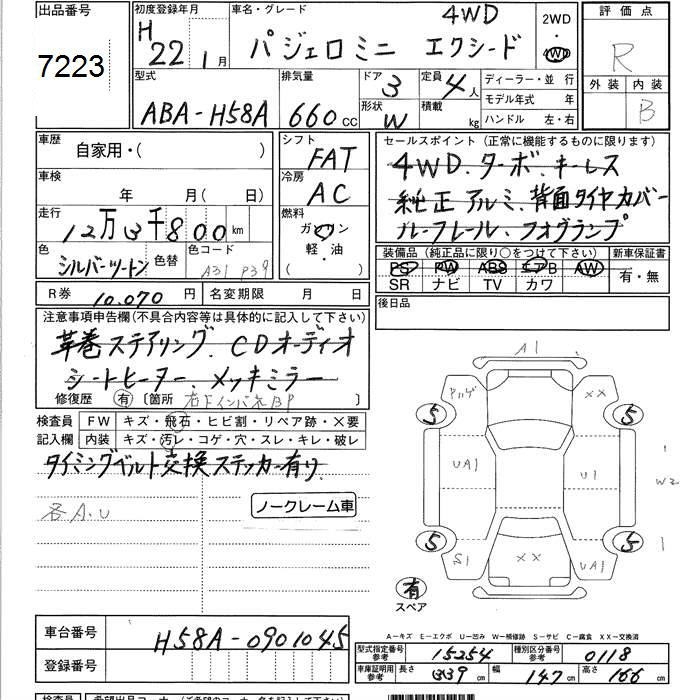 出品番号 初度登録年月 車名・グレード 4WD 2WD 評価点
7223 H22 1月 パジェロミニ エクシード 4WD R
型式 排気量 ドア 3 定員 4人 ディーラー・並 行 外装 内装
ABA-H58A 660cc 形状 W 積載 kg モデル年式 年 B
ハンドル 左・右
車歴 自家用・( ) シフト FAT セールスポイント (正常に機能するものに限ります)
車検 年 月( 日) 冷房 AC 4WD.ターボ.キーレス
純正アルミ.背面タイヤカバー
走行 12万3千800km 燃料 ガソリン 軽・油 ( ) ルーフレール.フォグランプ
色 シルバーツートン 色替 色コード A31 P39 装備品 (純正品に限り○をつけて下さい) 新車保証書
PS PW ABS エアB AW 有・無
R券 10,070円 名変期限 月 日 SR ナビ TV カワ
注意事項申告欄(不具合内容等は具体的に記入して下さい) 後日品
革巻ステアリング.CDオーディオ
シートヒーター.メッキミラー
修復歴 有 〔箇所 右Fインパネ BP 〕
検査員 FW キズ・飛石・ヒビ割・リペア跡・×要
記入欄 内装 キズ・汚レ・コゲ・穴・スレ・キレ・破レ
タイミングベルト交換ステッカー有り
各A.U ノークレーム車
A1
××
5 5
UA1 U1 W2
5 5 1
S1 ×× UA1
有
スペア
A-キズ E-エクボ U-凹み W-補修跡 S-サビ C-腐食 XX-交換済
車台番号 H58A-0901045
登録番号
型式指定番号 参考 15254 種別区分番号 参考 0118
車庫証明用 参考 長さ 339cm 幅 147cm 高さ 166cm